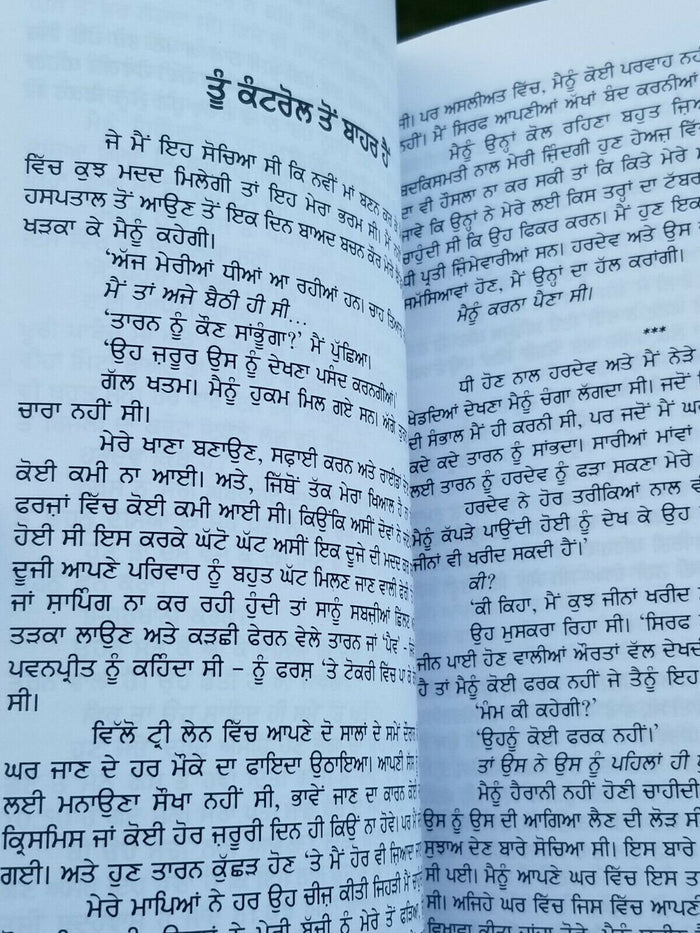 ਤੂੰ ਕੰਟਰੋਲ ਤੋਂ ਬਾਹਰ ਹੈਂ
ਜੇ ਮੈਂ ਇਹ ਸੋਚਿਆ ਸੀ ਕਿ ਨਵੀਂ ਮਾਂ ਬਣਨ ਕਰ ਕੇ
ਵਿੱਚ ਕੁਝ ਮਦਦ ਮਿਲੇਗੀ ਤਾਂ ਇਹ ਮੇਰਾ ਭਰਮ ਸੀ। ਮੈਂ
ਹਸਪਤਾਲ ਤੋਂ ਆਉਣ ਤੋਂ ਇਕ ਦਿਨ ਬਾਅਦ ਬਚਨ ਕੌਰ ਮੇਰੇ
ਖੜਕਾ ਕੇ ਮੈਨੂੰ ਕਹੇਗੀ।
‘ਅੱਜ ਮੇਰੀਆਂ ਧੀਆਂ ਆ ਰਹੀਆਂ ਹਨ। ਚਾਹ
ਮੈਂ ਤਾਂ ਅਜੇ ਬੈਠੀ ਹੀ ਸੀ...
‘ਤਾਰਨ ਨੂੰ ਕੌਣ ਸਾਂਭੂੰਗਾ?’ ਮੈਂ ਪੁੱਛਿਆ।
‘ਉਹ ਜ਼ਰੂਰ ਉਸ ਨੂੰ ਦੇਖਣਾ ਪਸੰਦ ਕਰਨਗੀਆਂ।
ਗੱਲ ਖਤਮ। ਮੈਨੂੰ ਹੁਕਮ ਮਿਲ ਗਏ ਸਨ। ਅੱਗੇ
ਚਾਰਾ ਨਹੀਂ ਸੀ।
ਮੇਰੇ ਖਾਣਾ ਬਣਾਉਣ, ਸਫ਼ਾਈ ਕਰਨ ਅਤੇ
ਕੋਈ ਕਮੀ ਨਾ ਆਈ। ਅਤੇ, ਜਿੱਥੋਂ ਤੱਕ ਮੇਰਾ ਖਿਆਲ ਹੈ
ਫਰਜ਼ਾਂ ਵਿੱਚ ਕੋਈ ਕਮੀ ਆਈ ਸੀ। ਕਿਉਂਕਿ ਅਸੀਂ ਦੋਵਾਂ ਨੇ
ਹੋਈ ਸੀ ਇਸ ਕਰਕੇ ਘੱਟੋ ਘੱਟ ਅਸੀਂ ਇਕ ਦੂਜੇ ਦੀ ਮਦਦ
ਦੂਜੀ ਆਪਣੇ ਪਰਿਵਾਰ ਨੂੰ ਬਹੁਤ ਘੱਟ ਮਿਲਣ ਜਾਣ ਵਾਲੀ
ਜਾਂ ਸ਼ਾਪਿੰਗ ਨਾ ਕਰ ਰਹੀ ਹੁੰਦੀ ਤਾਂ ਸਾਨੂੰ ਸਬਜ਼ੀਆਂ
ਤੜਕਾ ਲਾਉਣ ਅਤੇ ਕੜਛੀ ਫੇਰਨ ਵੇਲੇ ਤਾਰਨ ਜਾਂ ‘ਪੈਵ’ -
ਪਵਨਪ੍ਰੀਤ ਨੂੰ ਕਹਿੰਦਾ ਸੀ - ਨੂੰ ਫਰਸ਼ ‘ਤੇ ਟੋਕਰੀ ਵਿੱਚ ਪਾ ਕੇ
ਸੀ।
ਵਿੱਲੋ ਟ੍ਰੀ ਲੇਨ ਵਿੱਚ ਆਪਣੇ ਦੋ ਸਾਲਾਂ ਦੇ ਸਮੇਂ ਦੌਰਾਨ
ਘਰ ਜਾਣ ਦੇ ਹਰ ਮੌਕੇ ਦਾ ਫਾਇਦਾ ਉਠਾਇਆ। ਆਪਣੀ
ਲਈ ਮਨਾਉਣਾ ਸੌਖਾ ਨਹੀਂ ਸੀ, ਭਾਵੇਂ ਜਾਣ ਦਾ ਕਾਰਨ ਕੋਈ
ਕ੍ਰਿਸਮਿਸ ਜਾਂ ਕੋਈ ਹੋਰ ਜ਼ਰੂਰੀ ਦਿਨ ਹੀ ਕਿਉਂ ਨਾ ਹੋਵੇ। ਪਰ
ਗਈ। ਅਤੇ ਹੁਣ ਤਾਰਨ ਕੁੱਛੜ ਹੋਣ ‘ਤੇ ਮੈਂ ਹੋਰ ਵੀ ਜ਼ਿਆਦਾ
ਮੇਰੇ ਮਾਪਿਆਂ ਨੇ ਹਰ ਉਹ ਚੀਜ਼ ਕੀਤੀ ਜਿਹੜੀ ਮੈਂ
ਮੇਰੀ ਬੱਚੀ ਨੂੰ ਮੇਰੇ ਤੋਂ
ਸੀ। ਪਰ ਅਸਲੀਅਤ ਵਿੱਚ, ਮੈਨੂੰ ਕੋਈ ਪਰਵਾਹ
ਨਹੀਂ। ਮੈਂ ਸਿਰਫ ਆਪਣੀਆਂ ਅੱਖਾਂ ਬੰਦ ਕਰਨੀਆਂ
ਮੈਨੂੰ ਉਨ੍ਹਾਂ ਕੋਲ ਰਹਿਣਾ ਬਹੁਤ
ਬਦਕਿਸਮਤੀ ਨਾਲ ਮੇਰੀ ਜ਼ਿੰਦਗੀ ਹੁਣ ਹੇਅਜ਼ ਵਿੱਚ
ਦਾ ਵੀ ਹੌਸਲਾ ਨਾ ਕਰ ਸਕੀ ਤਾਂ ਕਿ ਕਿਤੇ ਮੇਰੇ
ਜਾਵੇ ਕਿ ਉਨ੍ਹਾਂ ਨੇ ਮੇਰੇ ਲਈ ਕਿਸ ਤਰ੍ਹਾਂ ਦਾ ਟੱਬਰ
ਚਾਹੁੰਦੀ ਸੀ ਕਿ ਉਹ ਫਿਕਰ ਕਰਨ। ਮੈਂ ਹੁਣ ਇਕ
ਧੀ ਪ੍ਰਤੀ ਜ਼ਿੰਮੇਵਾਰੀਆਂ ਸਨ। ਹਰਦੇਵ ਅਤੇ ਉਸ
ਸਮੱਸਿਆਵਾਂ ਹੋਣ, ਮੈਂ ਉਨ੍ਹਾਂ ਦਾ ਹੱਲ ਕਰਾਂਗੀ।
ਮੈਨੂੰ ਕਰਨਾ ਪੈਣਾ ਸੀ।
***
ਧੀ ਹੋਣ ਨਾਲ ਹਰਦੇਵ ਅਤੇ ਮੈਂ ਨੇੜੇ
ਖੇਡਦਿਆਂ ਦੇਖਣਾ ਮੈਨੂੰ ਚੰਗਾ ਲੱਗਦਾ ਸੀ। ਜਦੋਂ
ਦੀ ਸੰਭਾਲ ਮੈਂ ਹੀ ਕਰਨੀ ਸੀ, ਪਰ ਜਦੋਂ ਮੈਂ ਘਰ
ਕਦੇ ਕਦੇ ਤਾਰਨ ਨੂੰ ਸਾਂਭਦਾ। ਸਾਰੀਆਂ ਮਾਂਵਾਂ
ਲਈ ਤਾਰਨ ਨੂੰ ਹਰਦੇਵ ਨੂੰ ਫੜਾ ਸਕਣਾ ਮੇਰੇ
ਹਰਦੇਵ ਨੇ ਹੋਰ ਤਰੀਕਿਆਂ ਨਾਲ ਵੀ
ਮੈਨੂੰ ਕੱਪੜੇ ਪਾਉਂਦੀ ਹੋਈ ਨੂੰ ਦੇਖ ਕੇ ਉਹ
ਜੀਨਾਂ ਵੀ ਖਰੀਦ ਸਕਦੀ ਹੈਂ।’
ਕੀ?
‘ਕੀ ਕਿਹਾ, ਮੈਂ ਕੁਝ ਜੀਨਾਂ ਖਰੀਦ
ਉਹ ਮੁਸਕਰਾ ਰਿਹਾ ਸੀ। ‘ਸਿਰਫ
ਜੀਨ ਪਾਈ ਹੋਣ ਵਾਲੀਆਂ ਔਰਤਾਂ ਵੱਲ ਦੇਖਦੇ
ਹੈ ਤਾਂ ਮੈਨੂੰ ਕੋਈ ਫਰਕ ਨਹੀਂ ਜੇ ਤੈਨੂੰ ਇਹ
‘ਮੰਮ ਕੀ ਕਹੇਗੀ?’
‘ਉਹਨੂੰ ਕੋਈ ਫਰਕ ਨਹੀਂ।’
ਤਾਂ ਉਸ ਨੇ ਉਸ ਨੂੰ ਪਹਿਲਾਂ ਹੀ
ਮੈਨੂੰ ਹੈਰਾਨੀ ਨਹੀਂ ਹੋਣੀ ਚਾਹੀਦੀ
ਉਸ ਨੂੰ ਉਸ ਦੀ ਆਗਿਆ ਲੈਣ ਦੀ ਲੋੜ
ਸੁਝਾਅ ਦੇਣ ਬਾਰੇ ਸੋਚਿਆ ਸੀ। ਇਸ ਬਾਰੇ
ਸੀ ਪਈ। ਮੈਨੂੰ ਆਪਣੇ ਘਰ ਵਿੱਚ ਇਸ
ਸੀ। ਅਜਿਹੇ ਘਰ ਵਿੱਚ ਜਿਸ ਵਿੱਚ ਆਪਣੀ